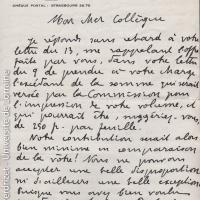 CHÈQUE POSTAL : STRASBOURG 55.75
Mon cher Collègue
Je réponds sans retard à votre
lettre du 13, me rappelant l'offre
faite par vous, dans votre lettre
du 9 de prendre à votre charge
l'excédant de la somme qui serait
versée par la Commission pour
l'impression de votre volume, et
qui pourrait être, suggériez-vous,
de 250 f. par feuille!
Notre contribution serait alors
bien minime en comparaison
de la vôtre! Nous ne pouvons
accepter une telle disproportion
ni d'ailleurs une telle exception
puisque vous avez bien voulu